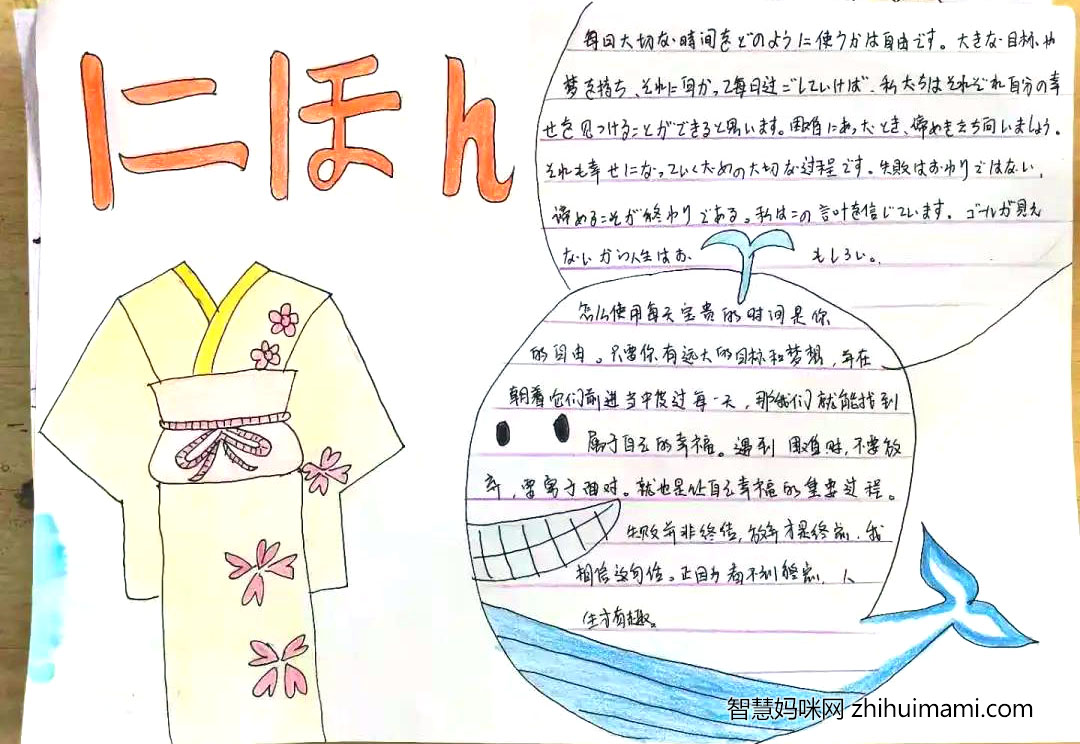 にほん
毎日大切な時間をどのように使うかは自由です。大きな目标や
梦を持ち、それに向かって毎日过ごしていけば、私たちはそれぞれ自分の幸
せを見つけることができると思います。困难にあったとき、諦めを立ち向いましょう。
それも幸せになっていくための大切な过程です。失敗はおわりではない、
諦めるこそが終わりである。私はこの言叶を信じています。ゴールが見え
ないから人生はお
もしろい。
怎么使用每天宝贵的时间是你
的自由。只要你有远大的目标和梦想，并在
朝着它们前进当中度过每一天，那我们就能找到
属于自己的幸福。遇到困难时，不要放
弃，要勇于面对。就也是让自己幸福的重要过程。
失败并非终结，放弃才是终点，我
相信这句话。正因为看不到终点，人
生才有趣。
智慧妈咪网 zhihuimami.com